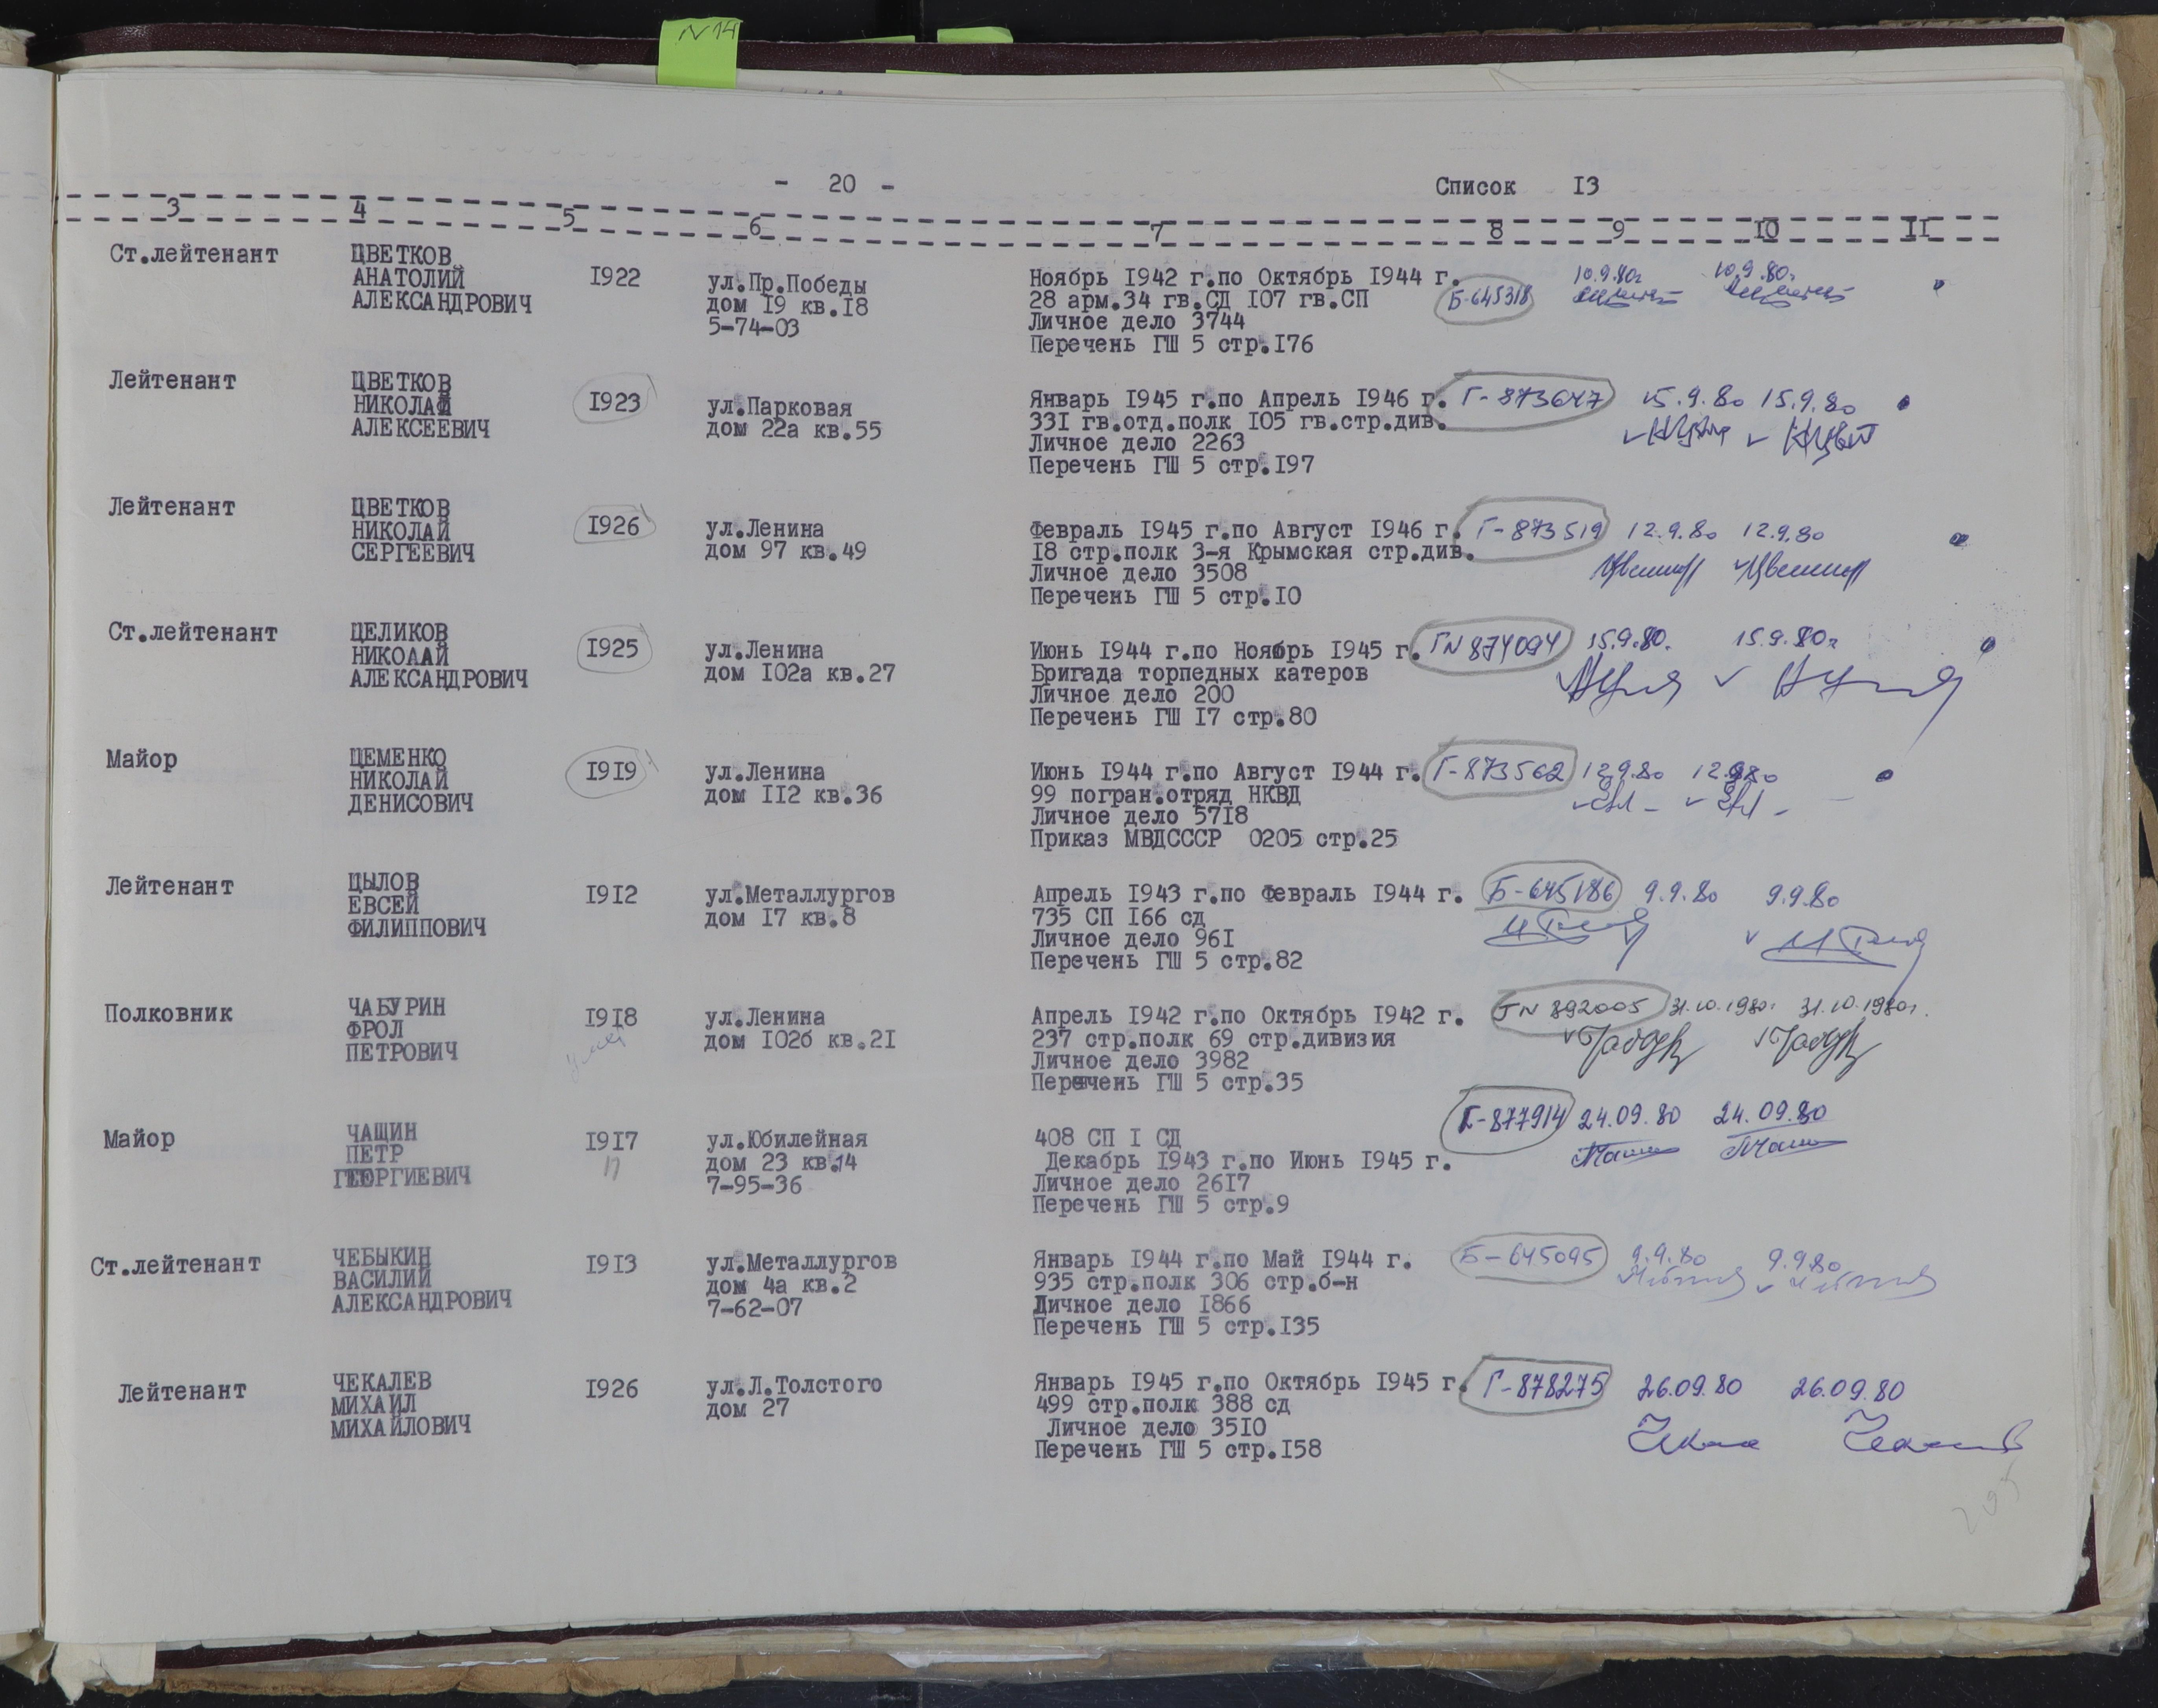 N 14
- 20 -
Список 13
3 4 5 6 7 8 9 10 11
Ст.лейтенант
ЦВЕТКОВ
АНАТОЛИЙ
АЛЕКСАНДРОВИЧ
1922
ул.Пр.Победы
дом 19 кв.18
5-74-03
Ноябрь 1942 г.по Октябрь 1944 г.
28 арм.34 гв.СД 107 гв.СП
Личное дело 3744
Перечень ГШ 5 стр.176
Б-645318
10.9.80г
10.9.80г
Лейтенант
ЦВЕТКОВ
НИКОЛАЙ
АЛЕКСЕЕВИЧ
1923
ул.Парковая
дом 22а кв.55
Январь 1945 г.по Апрель 1946 г.
331 гв.отд.полк 105 гв.стр.див.
Личное дело 2263
Перечень ГШ 5 стр.197
Г-873647
15.9.80
15.9.80
Лейтенант
ЦВЕТКОВ
НИКОЛАЙ
СЕРГЕЕВИЧ
1926
ул.Ленина
дом 97 кв.49
Февраль 1945 г.по Август 1946 г.
18 стр.полк 3-я Крымская стр.див.
Личное дело 3508
Перечень ГШ 5 стр.10
Г-873519
12.9.80
12.9.80
Ст.лейтенант
ЦЕЛИКОВ
НИКОЛАЙ
АЛЕКСАНДРОВИЧ
1925
ул.Ленина
дом 102а кв.27
Июнь 1944 г.по Ноябрь 1945 г.
Бригада торпедных катеров
Личное дело 200
Перечень ГШ 17 стр.80
ГN 874094
15.9.80.
15.9.80г
Майор
ЦЕМЕНКО
НИКОЛАЙ
ДЕНИСОВИЧ
1919
ул.Ленина
дом 112 кв.36
Июнь 1944 г.по Август 1944 г.
99 погран.отряд НКВД
Личное дело 5718
Приказ МВДСССР 0205 стр.25
Г-873562
12.9.80
12.9.80
Лейтенант
ЦЫЛОВ
ЕВСЕЙ
ФИЛИППОВИЧ
1912
ул.Металлургов
дом 17 кв.8
Апрель 1943 г.по Февраль 1944 г.
735 СП 166 сд
Личное дело 961
Перечень ГШ 5 стр.82
Б-645186
9.9.80
9.9.80
Полковник
ЧАБУРИН
ФРОЛ
ПЕТРОВИЧ
1918
ул.Ленина
дом 102б кв.21
Апрель 1942 г.по Октябрь 1942 г.
237 стр.полк 69 стр.дивизия
Личное дело 3982
Перечень ГШ 5 стр.35
ГN 892005
31.10.1980г.
31.10.1980г.
Майор
ЧАЩИН
ПЕТР
ГЕОРГИЕВИЧ
1917
17
ул.Юбилейная
дом 23 кв.14
7-95-36
408 СП 1 СД
Декабрь 1943 г.по Июнь 1945 г.
Личное дело 2617
Перечень ГШ 5 стр.9
Г-877914
24.09.80
24.09.80
Ст.лейтенант
ЧЕБЫКИН
ВАСИЛИЙ
АЛЕКСАНДРОВИЧ
1913
ул.Металлургов
дом 4а кв.2
7-62-07
Январь 1944 г.по Май 1944 г.
935 стр.полк 306 стр.б-н
Личное дело 1866
Перечень ГШ 5 стр.135
Б-645095
9.9.80
9.9.80
Лейтенант
ЧЕКАЛЕВ
МИХАИЛ
МИХАЙЛОВИЧ
1926
ул.Л.Толстого
дом 27
Январь 1945 г.по Октябрь 1945 г.
499 стр.полк 388 сд
Личное дело 3510
Перечень ГШ 5 стр.158
Г-878275
26.09.80
26.09.80